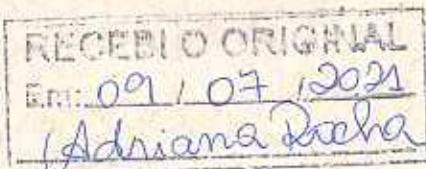 RECEBI O ORIGINAL
Em: 09 / 07 / 2021
Adriana Rocha